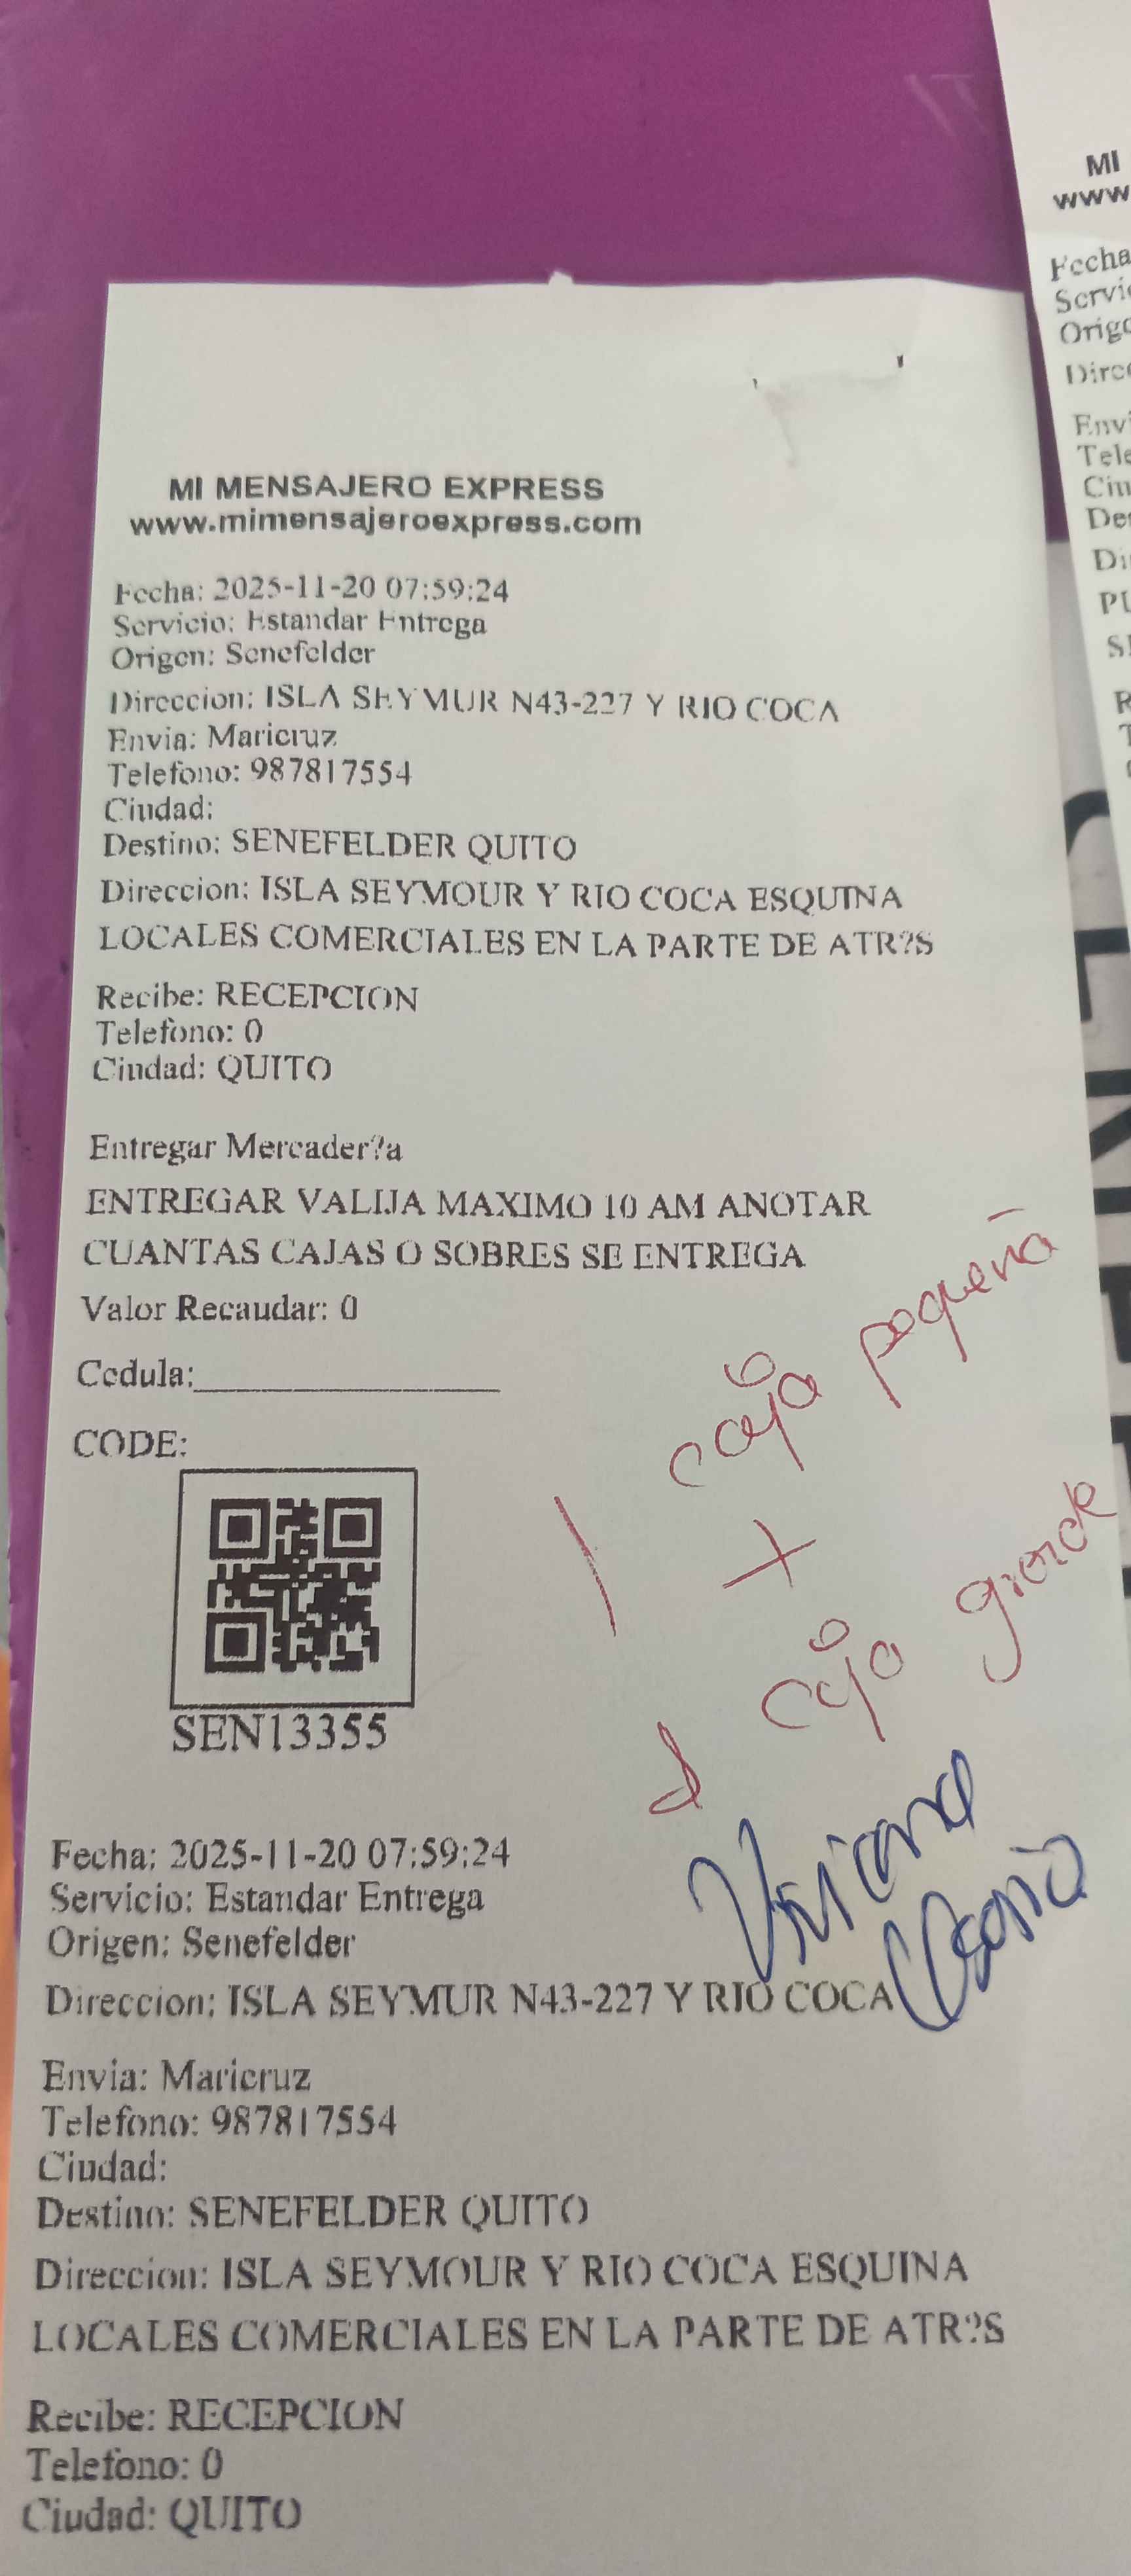 MI MENSAJERO EXPRESS
www.mimensajeroexpress.com
Fecha: 2025-11-20 07:59:24
Servicio: Estandar Entrega
Origen: Senefelder
Direccion: ISLA SEYMUR N43-227 Y RIO COCA
Envia: Maricruz
Telefono: 987817554
Ciudad:
Destino: SENEFELDER QUITO
Direccion: ISLA SEYMOUR Y RIO COCA ESQUINA
LOCALES COMERCIALES EN LA PARTE DE ATR?S
Recibe: RECEPCION
Telefono: 0
Ciudad: QUITO
Entregar Mercader?a
ENTREGAR VALIJA MAXIMO 10 AM ANOTAR
CUANTAS CAJAS O SOBRES SE ENTREGA
Valor Recaudar: 0
Cedula:
CODE:
SEN13355
1 caja pequeña
+
caja grande
Viviana
Fecha: 2025-11-20 07:59:24
Servicio: Estandar Entrega
Origen: Senefelder
Direccion: ISLA SEYMUR N43-227 Y RIO COCA
Envia: Maricruz
Telefono: 987817554
Ciudad:
Destino: SENEFELDER QUITO
Direccion: ISLA SEYMOUR Y RIO COCA ESQUINA
LOCALES COMERCIALES EN LA PARTE DE ATR?S
Recibe: RECEPCION
Telefono: 0
Ciudad: QUITO
MI
www
Fecha
Servi
Orig
Dire
Envi
Tele
Ciu
De
Di
PU